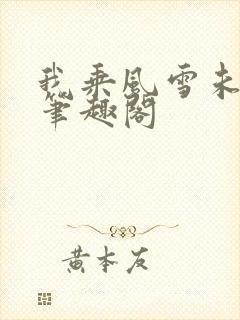 我乘风雪未
笔趣阁
黄本友